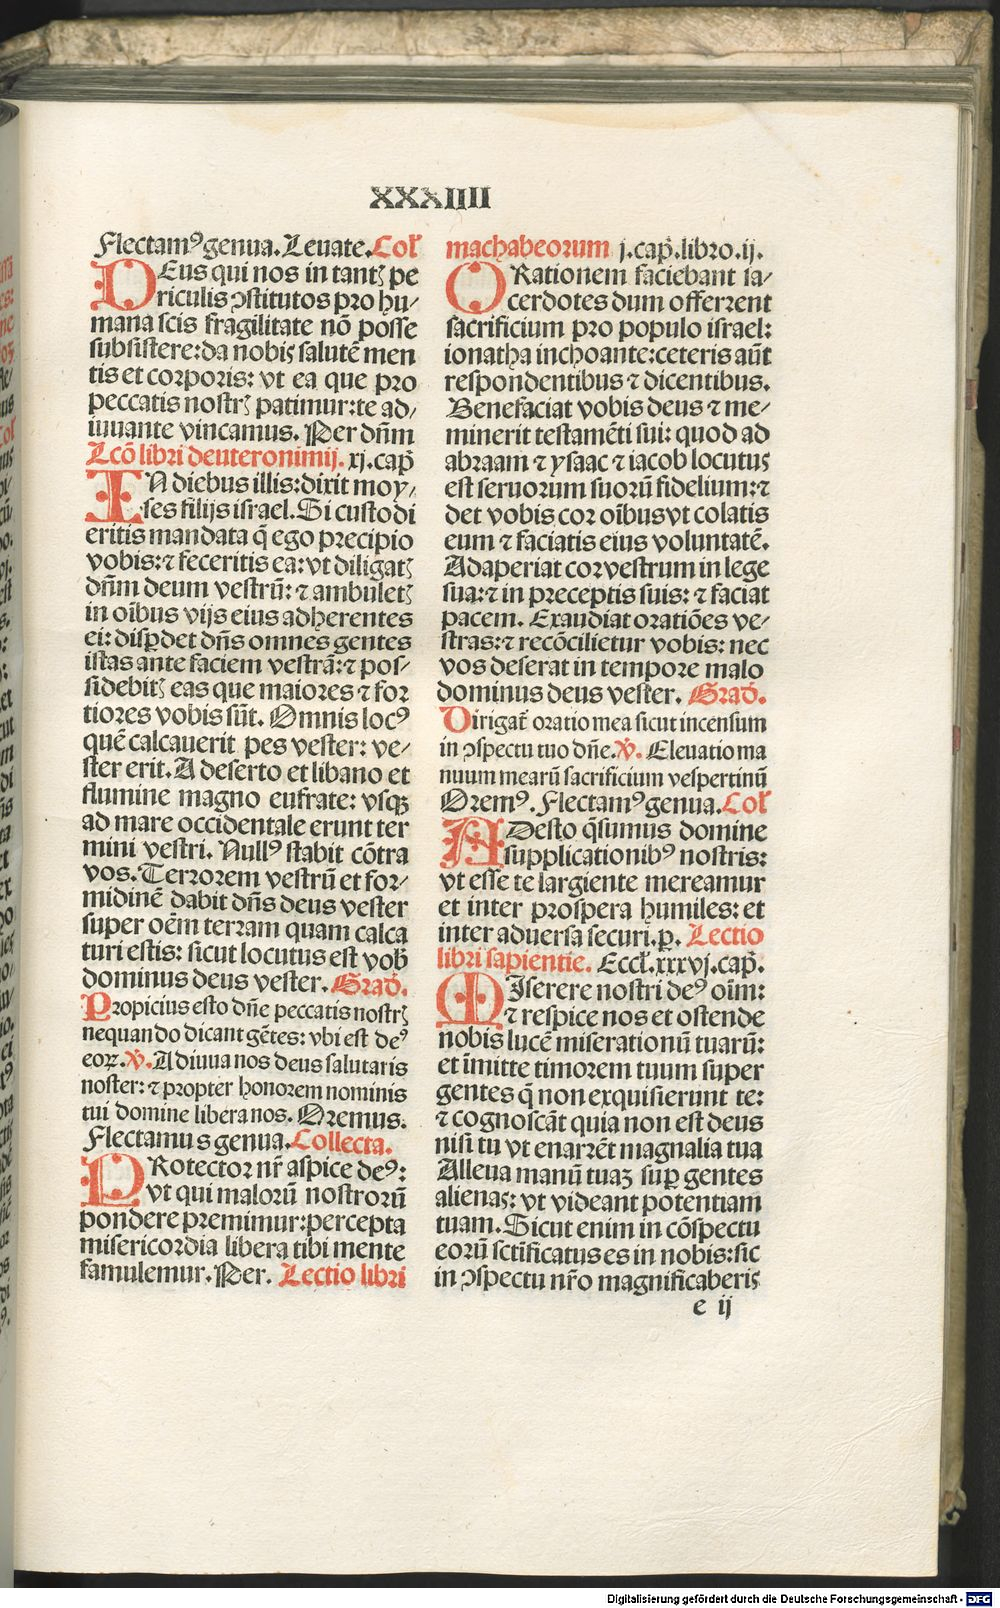 XXXIIII
Flectamꝰ genua. Leuate. Col̃
DEus qui nos in tantꝭ pe
riculis ꝯstitutos pro hu⸗
mana scis fragilitate nō posse
subsistere: da nobis salutē men
tis et corporis: vt ea que pro
peccatis nostrꝭ patimur: te ad⸗
iuuante vincamus. Per dn̄m
Lcō libri deuteronimij. xj. cap̃
IN diebus illis: dixit moy⸗
ses filijs israel. Si custodi
eritis mandata q̄ ego precipio
vobis: ⁊ feceritis ea: vt diligatꝭ
dn̄m deum vestrū: ⁊ ambuletꝭ
in oībus vijs eius adherentes
ei: disꝑdet dn̄s omnes gentes
istas ante faciem vestrā: ⁊ pos⸗
sidebitꝭ eas que maiores ⁊ for
tiores vobis sūt. Omnis locꝰ
quē calcauerit pes vester: ve⸗
ster erit. A deserto et libano et
flumine magno eufrate: vsqꝫ
ad mare occidentale erunt ter
mini vestri. Nullꝰ stabit cōtra
vos. Terrorem vestrū et for⸗
midinē dabit dn̄s deus vester
super oēm terram quam calca
turi estis: sicut locutus est vob̃
dominus deus vester. Grad̃.
Propicius esto dn̄e peccatis nostrꝭ
nequando dicant gētes: vbi est deꝰ
eoꝝ. ℣. Adiuua nos deus salutaris
noster: ⁊ propter honorem nominis
tui domine libera nos. Oremus.
Flectamus genua. Collecta.
PRotector nr̄ aspice deꝰ:
vt qui malorū nostrorū
pondere premimur: percepta
misericordia libera tibi mente
famulemur. Per. Lectio libri
machabeorum j. cap̃. libro. ij.
ORationem faciebant sa⸗
cerdotes dum offerrent
sacrificium pro populo israel:
ionatha inchoante: ceteris aūt
respondentibus ⁊ dicentibus.
Benefaciat vobis deus ⁊ me⸗
minerit testamēti sui: quod ad
abraam ⁊ ysaac ⁊ iacob locutus
est seruorum suorū fidelium: ⁊
det vobis cor oībus vt colatis
eum ⁊ faciatis eius voluntatē.
Adaperiat cor vestrum in lege
sua: ⁊ in preceptis suis: ⁊ faciat
pacem. Exaudiat oratiōes ve⸗
stras: ⁊ recōcilietur vobis: nec
vos deserat in tempore malo
dominus deus vester. Grad̃.
Dirigat̃ oratio mea sicut incensum
in ꝯspectu tuo dn̄e. ℣. Eleuatio ma
nuum mearū sacrificium vespertinū
Oremꝰ. Flectamꝰ genua. Col̃
ADesto q̄sumus domine
supplicationibꝰ nostris:
vt esse te largiente mereamur
et inter prospera humiles: et
inter aduersa securi. p̱. Lectio
libri sapientie. Eccl̃. xxxvj. cap̃.
MIserere nostri deꝰ oīm:
⁊ respice nos et ostende
nobis lucē miserationū tuarū:
et īmitte timorem tuum super
gentes q̄ non exquisierunt te:
⁊ cognoscāt quia non est deus
nisi tu vt enarrēt magnalia tua
Alleua manū tuaꝫ suꝑ gentes
alienas: vt videant potentiam
tuam. Sicut enim in cōspectu
eorū sctīficatus es in nobis: sic
in ꝯspectu nr̄o magnificaberis
e ij
Digitalisierung gefördert durch die Deutsche Forschungsgemeinschaft - DFG